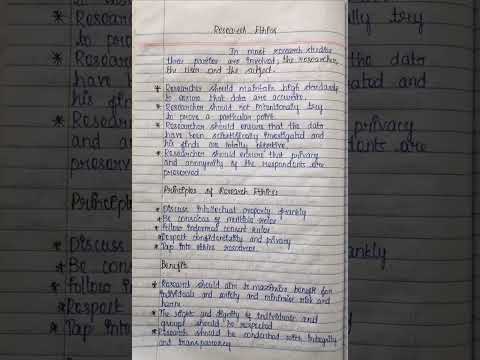 Research Ethics
In most research studies
three parties are involved, the researcher,
the User and the subject.
* Researcher should maintain high standards
to assure that data are accurate.
* Researcher should not intentionally try
to prove a particular point.
* Researcher should ensure that the data
have been scientifically investigated and
his finds are totally objective.
* Researcher should ensure that privacy
and anonymity of the respondents are
preserved
Principles of Research Ethics
* Discuss intellectual property frankly
* Be conscious of multiple roles
* follow informed consent rules
* Respect confidentiality and privacy
* Tap into ethics resources.
Benefits
* Research should aim to maximise benefit for
individuals and society and minimise risk and
harm
* The rights and dignity of individuals and
groups should be respected
* Research should be conducted with integrity
and transparency